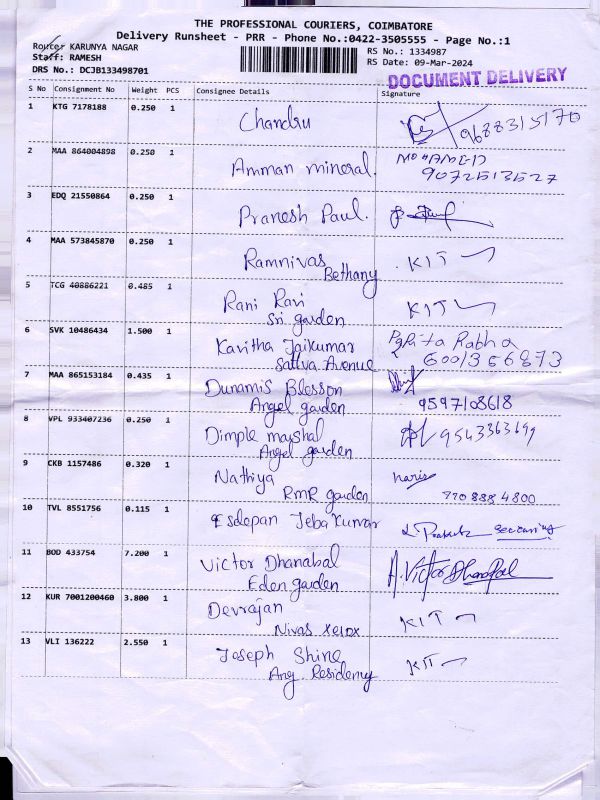 THE PROFESSIONAL COURIERS, COIMBATORE
Delivery Runsheet - PRR - Phone No.:0422-3505555 - Page No.:1
Router KARUNYA NAGAR
RS No.: 1334987
Staff: RAMESH
RS Date: 09-Mar-2024
DRS No.: DCJB133498701
DOCUMENT DELIVERY
S No Consignment No Weight PCS Consignee Details Signature
1 KTG 7178188 0.250 1 Chandru 9688315170
2 MAA 864004898 0.250 1 Amman mineral. MOHAMED
9072513527
3 EDQ 21550864 0.250 1 Pranesh Paul.
4 MAA 573845870 0.250 1 Ramnivas KIT
Bethany
5 TCG 40886221 0.485 1 Rani Ravi KIT
Sri garden
6 SVK 10486434 1.500 1 Kavitha Jaikumar Rabha
Sattva Avenue 6001356873
7 MAA 865153184 0.435 1 Dunamis Blesson
Angel garden 9597108618
8 VPL 933407236 0.250 1 Dimple marshal
Angel garden
9 CKB 1157486 0.320 1 Nathiya haris
RMR garden 770 888 4800
10 TVL 8551756 0.115 1 Esdopan Jeba Kumar
11 BOD 433754 7.200 1 Victor Dhanabal A. Victor Dhanapal
Eden garden
12 KUR 7001200460 3.800 1 Devrajan KIT
Nivas Xerox
13 VLI 136222 2.550 1 Joseph Shine KIT
Ang. Residency